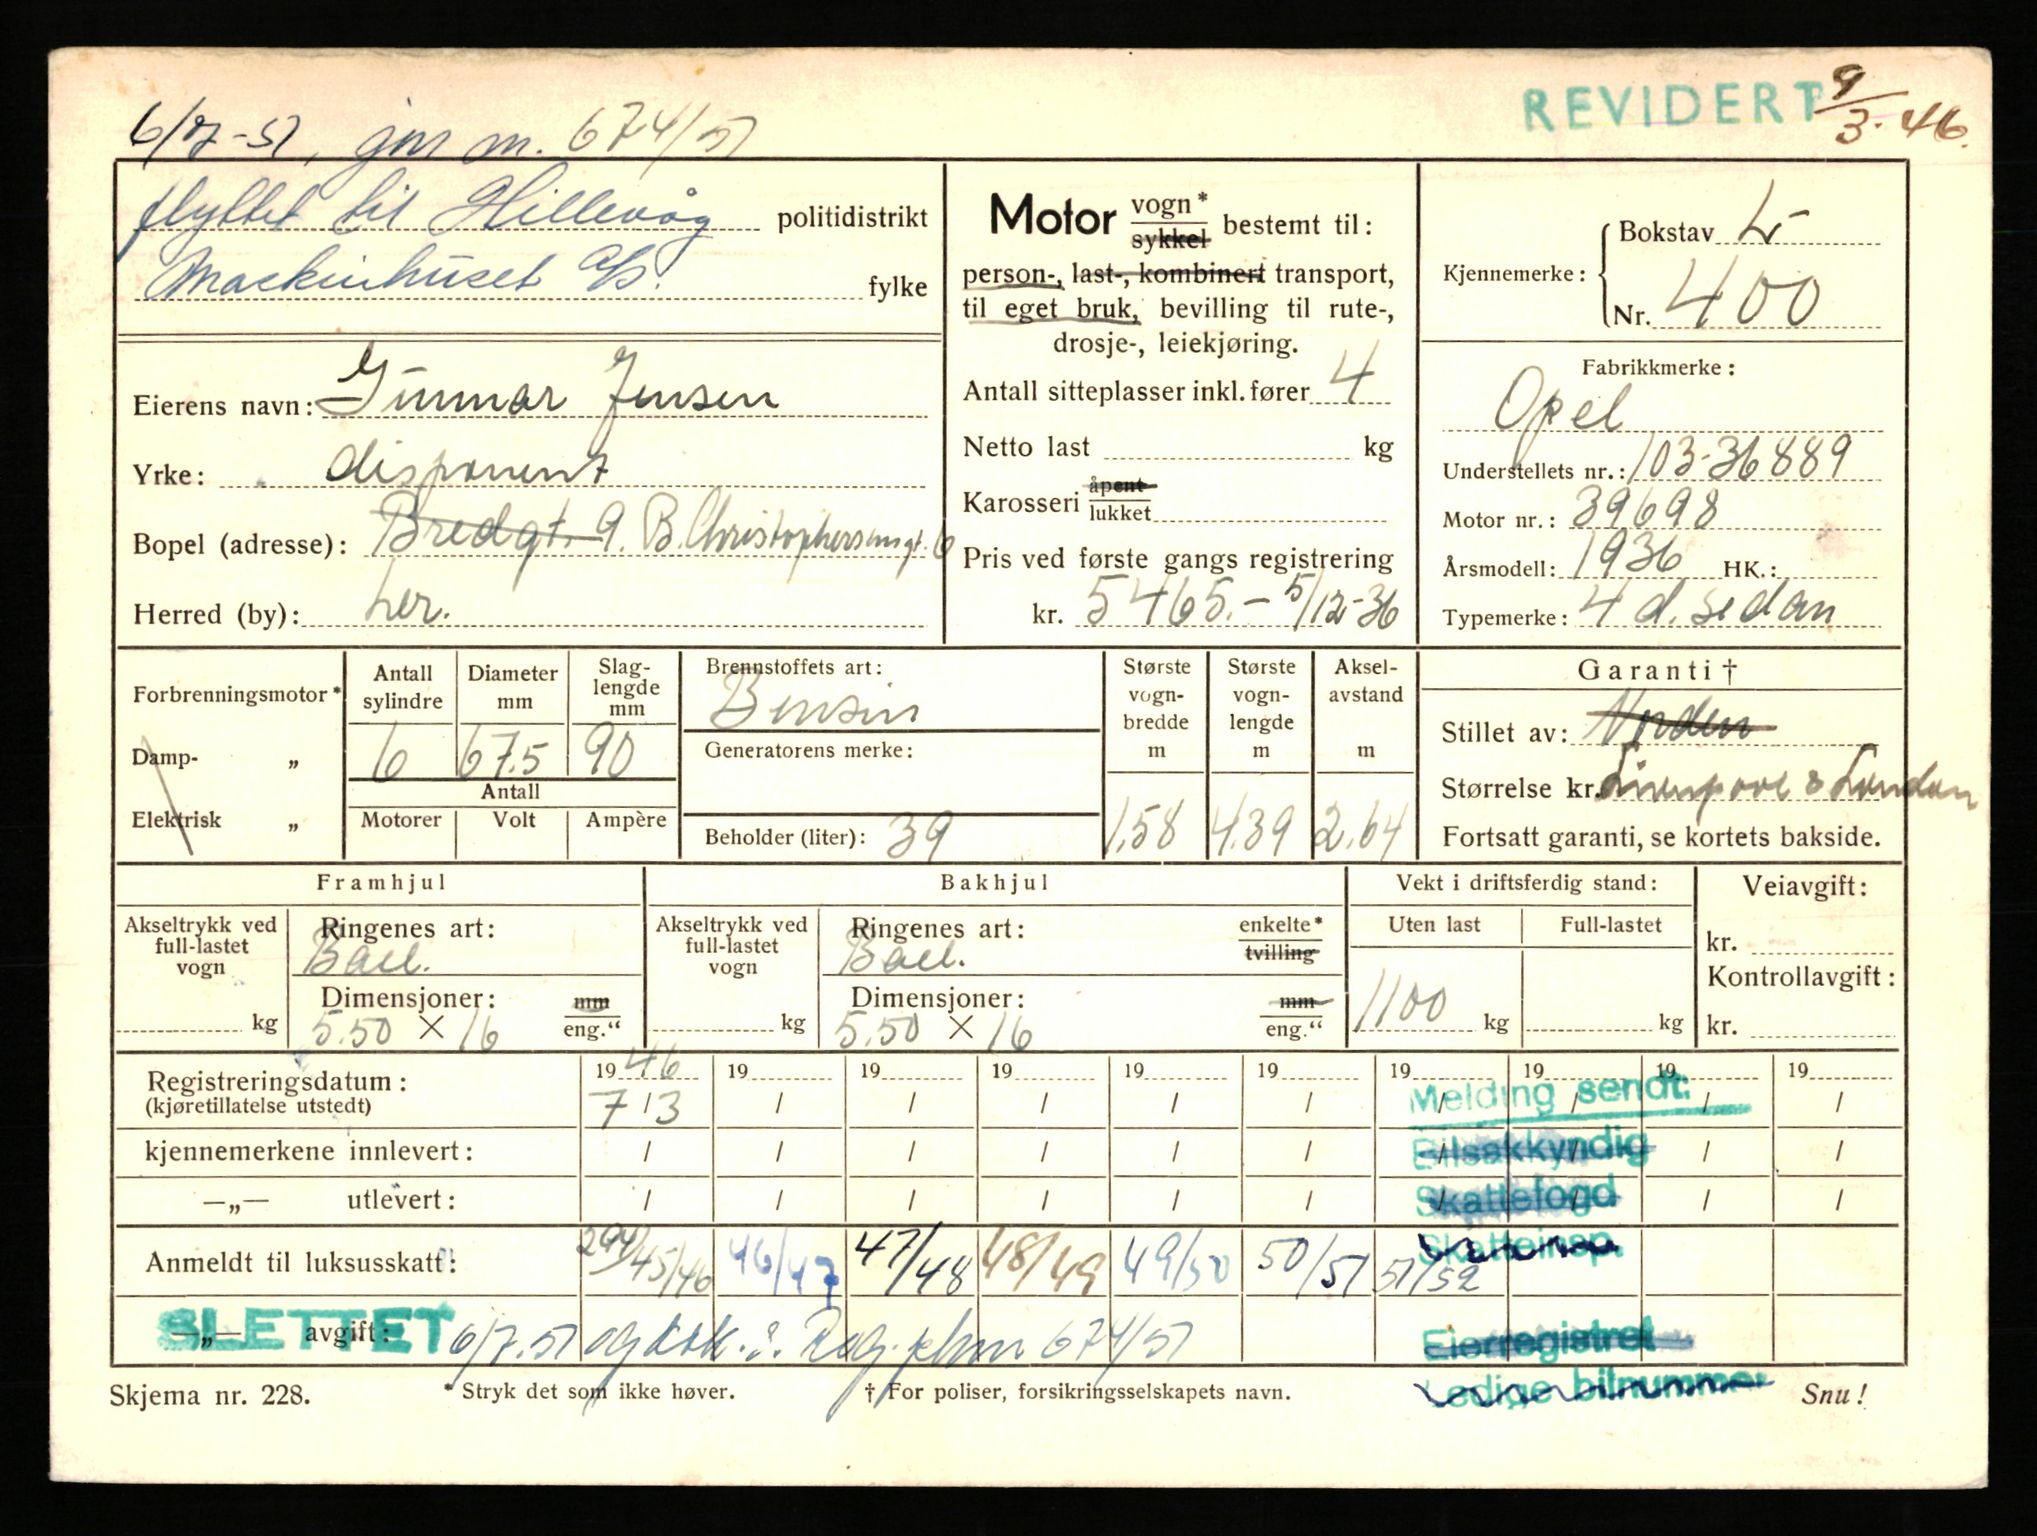 REVIDERT 9/3-46.
6/7-51, jnr m. 674/51
flyttet til Hillevåg politidistrikt
Maskinhuset A/S. fylke
Eierens navn: Gunnar Jensen
Yrke: disponent
Bopel (adresse): Bredgt. 9. B. Christophersensgt. 6
Herred (by): her.
Motor vogn* sykkel bestemt til:
person-, last-, kombinert transport,
til eget bruk, bevilling til rute-,
drosje-, leiekjøring.
Antall sitteplasser inkl. fører 4
Netto last kg
Karosseri åpent lukket
Pris ved første gangs registrering
kr. 5465.- 5/12-36
Kjennemerke: Bokstav L
Nr. 400
Fabrikkmerke:
Opel
Understellets nr.: 103-36889
Motor nr.: 39698
Årsmodell: 1936 HK.:
Typemerke: 4 d. sedan
Forbrenningsmotor*
Damp- „
Elektrisk „
Antall sylindre 6
Diameter mm 67.5
Slaglengde mm 90
Antall
Motorer Volt Ampère
Brennstoffets art:
Bensin
Generatorens merke:
Beholder (liter): 39
Største vogn-bredde m 1.58
Største vogn-lengde m 4.39
Aksel-avstand m 2.64
Garanti †
Stillet av: Norden
Størrelse kr. Liverpool & London
Fortsatt garanti, se kortets bakside.
Framhjul
Akseltrykk ved full-lastet vogn kg
Ringenes art:
Ball.
Dimensjoner: mm
5.50 × 16 eng.“
Bakhjul
Akseltrykk ved full-lastet vogn kg
Ringenes art: enkelte*
Ball. tvilling
Dimensjoner: mm
5.50 × 16 eng.“
Vekt i driftsferdig stand:
Uten last Full-lastet
1100 kg kg
Veiavgift:
kr.
Kontrollavgift:
kr.
Registreringsdatum: 1946 19 19 19 19 19 19 19 19 19
(kjøretillatelse utstedt) 7/3 / / / / / / / / /
kjennemerkene innlevert: / / / / / / / / / /
—„— utlevert: / / / / / / / / / /
Anmeldt til luksusskatt: 45/46 46/47 47/48 48/49 49/50 50/51 51/52
—„— avgift:
SLETTET 6/7.51 674/51
Melding sendt:
Bilsakkyndig
Skattefogd
Skatteinsp.
Eierregistret
Ledige bilnummer
Skjema nr. 228. * Stryk det som ikke høver. † For poliser, forsikringsselskapets navn. Snu!